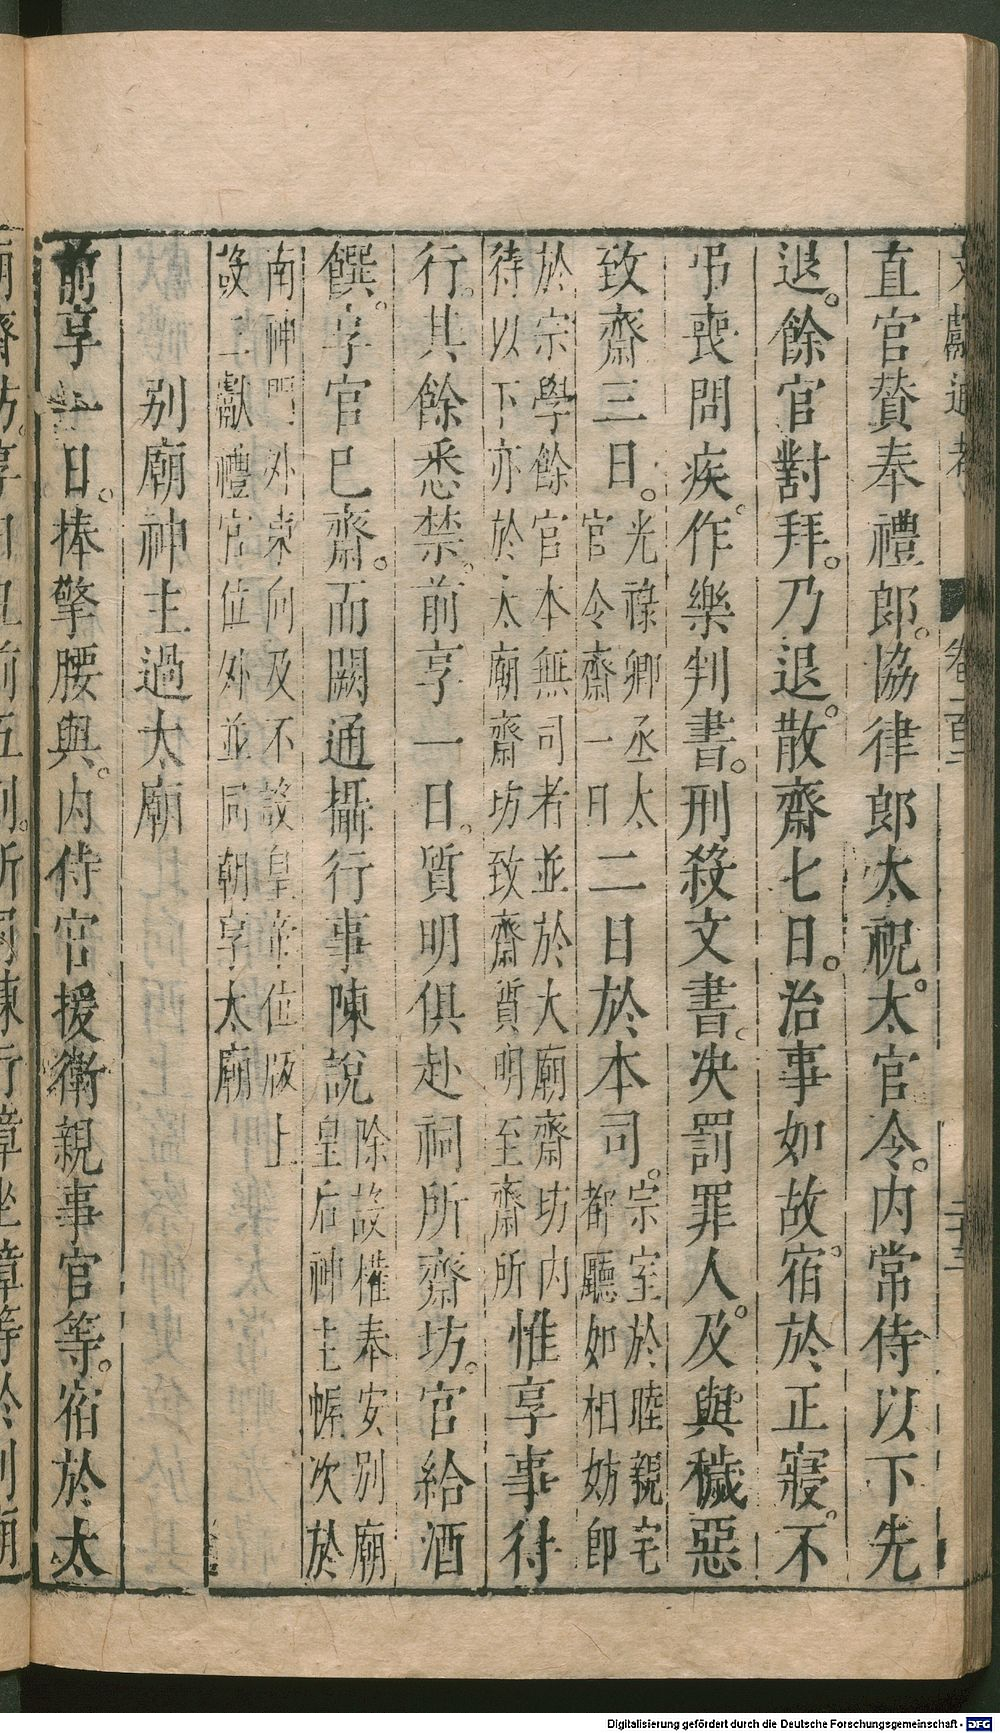 直官贊奉禮郎。協律郎太祝。太官令。內常侍以下先
退。餘官對拜。乃退。散齋七日。治事如故。宿於正寢。不
弔喪問疾。作樂判書。刑殺文書。決罰罪人。及與穢惡
致齋三日。光祿卿丞太官令齋一日二日於本司。宗室於睦親宅都廳如相妨即
於宗學餘官本無司者並於大廟齋坊內待以下亦於太廟齋坊致齋質明至齋所惟享事得
行。其餘悉禁。前享一日。質明俱赴祠所齋坊。官給酒
饌。享官已齋。而闕通攝行事陳說除設權奉安別廟皇后神主幄次於
南神門外東向及不設皇帝位版上設三獻禮官位外並同朝享太廟
別廟神主過太廟
前享一日。捧擎腰輿。內侍官援衛親事官等。宿於太
文獻通考
卷一百
二十三
Digitalisierung gefördert durch die Deutsche Forschungsgemeinschaft - DFG